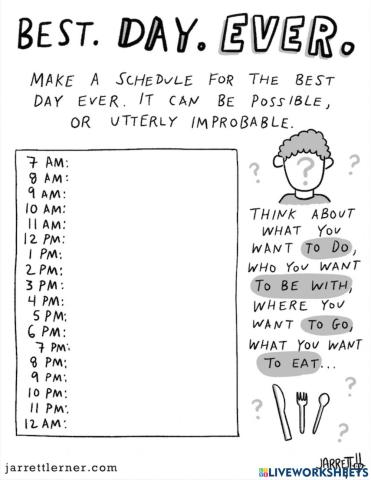 BEST. DAY. EVER.
MAKE A SCHEDULE FOR THE BEST
DAY EVER. IT CAN BE POSSIBLE,
OR UTTERLY IMPROBABLE.
7 AM:
8 AM:
9 AM:
10 AM:
11 AM:
12 PM:
1 PM:
2 PM:
3 PM:
4 PM:
5 PM:
6 PM:
7 PM:
8 PM:
9 PM:
10 PM:
11 PM:
12 AM:
? ? ?
THINK ABOUT
WHAT YOU
WANT TO DO,
WHO YOU WANT
TO BE WITH,
WHERE YOU
WANT TO GO,
WHAT YOU WANT
TO EAT...
?
? ?
jarrettlerner.com
LIVEWORKSHEETS